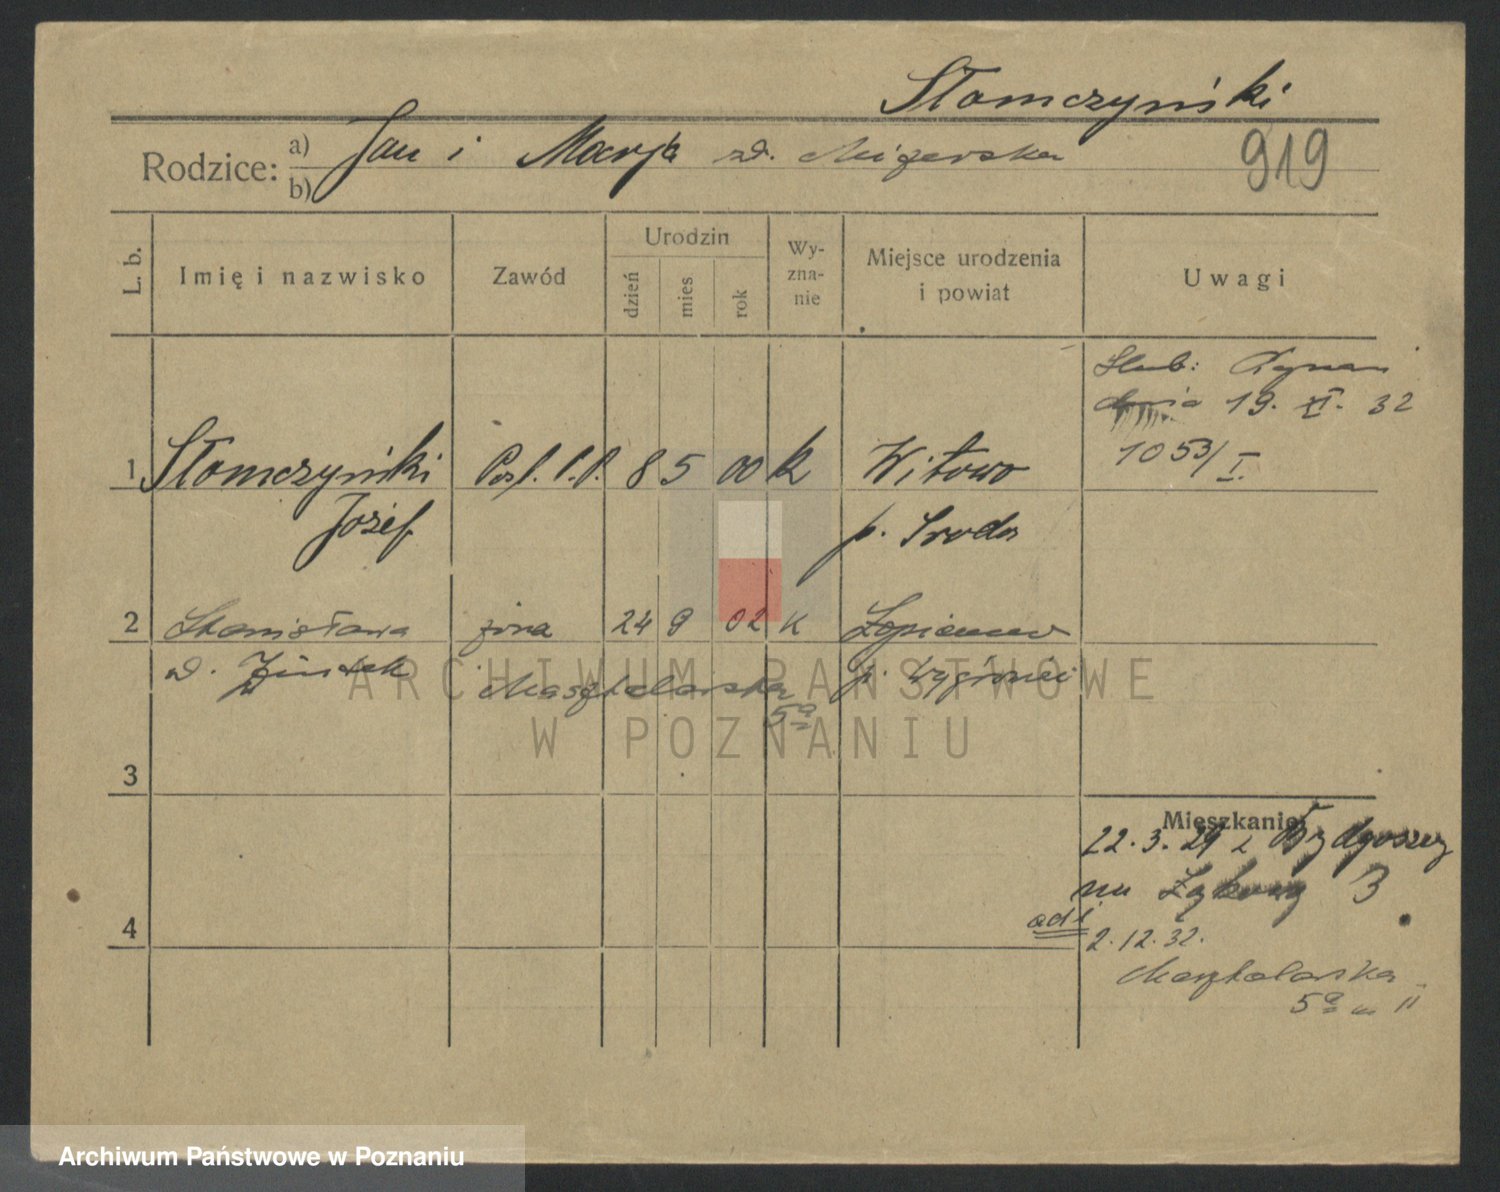 Słomczyński
Rodzice: a) Jan i Marja zd. Mizerska
b)
919
L. b.
Imię i nazwisko
Zawód
Urodzin
dzień
mies
rok
Wy-
zna-
nie
Miejsce urodzenia
i powiat
Uwagi
Ślub: Poznań
dnia 19. XI. 32
1053/I.
1 Słomczyński Post. P.P. 8 5 00 k Witowo
Józef p. Środa
2 Stanisława żona 24 9 02 k Łopienno
zd. p. Wągrowiec
Masztalarska
5a
3
Mieszkanie:
22.3.29 z Bydgoszcz
na Łąkowa 3
4
od 1
2.12.32.
Masztalarska
5a m 11
ARCHIWUM PAŃSTWOWE
W POZNANIU
Archiwum Państwowe w Poznaniu